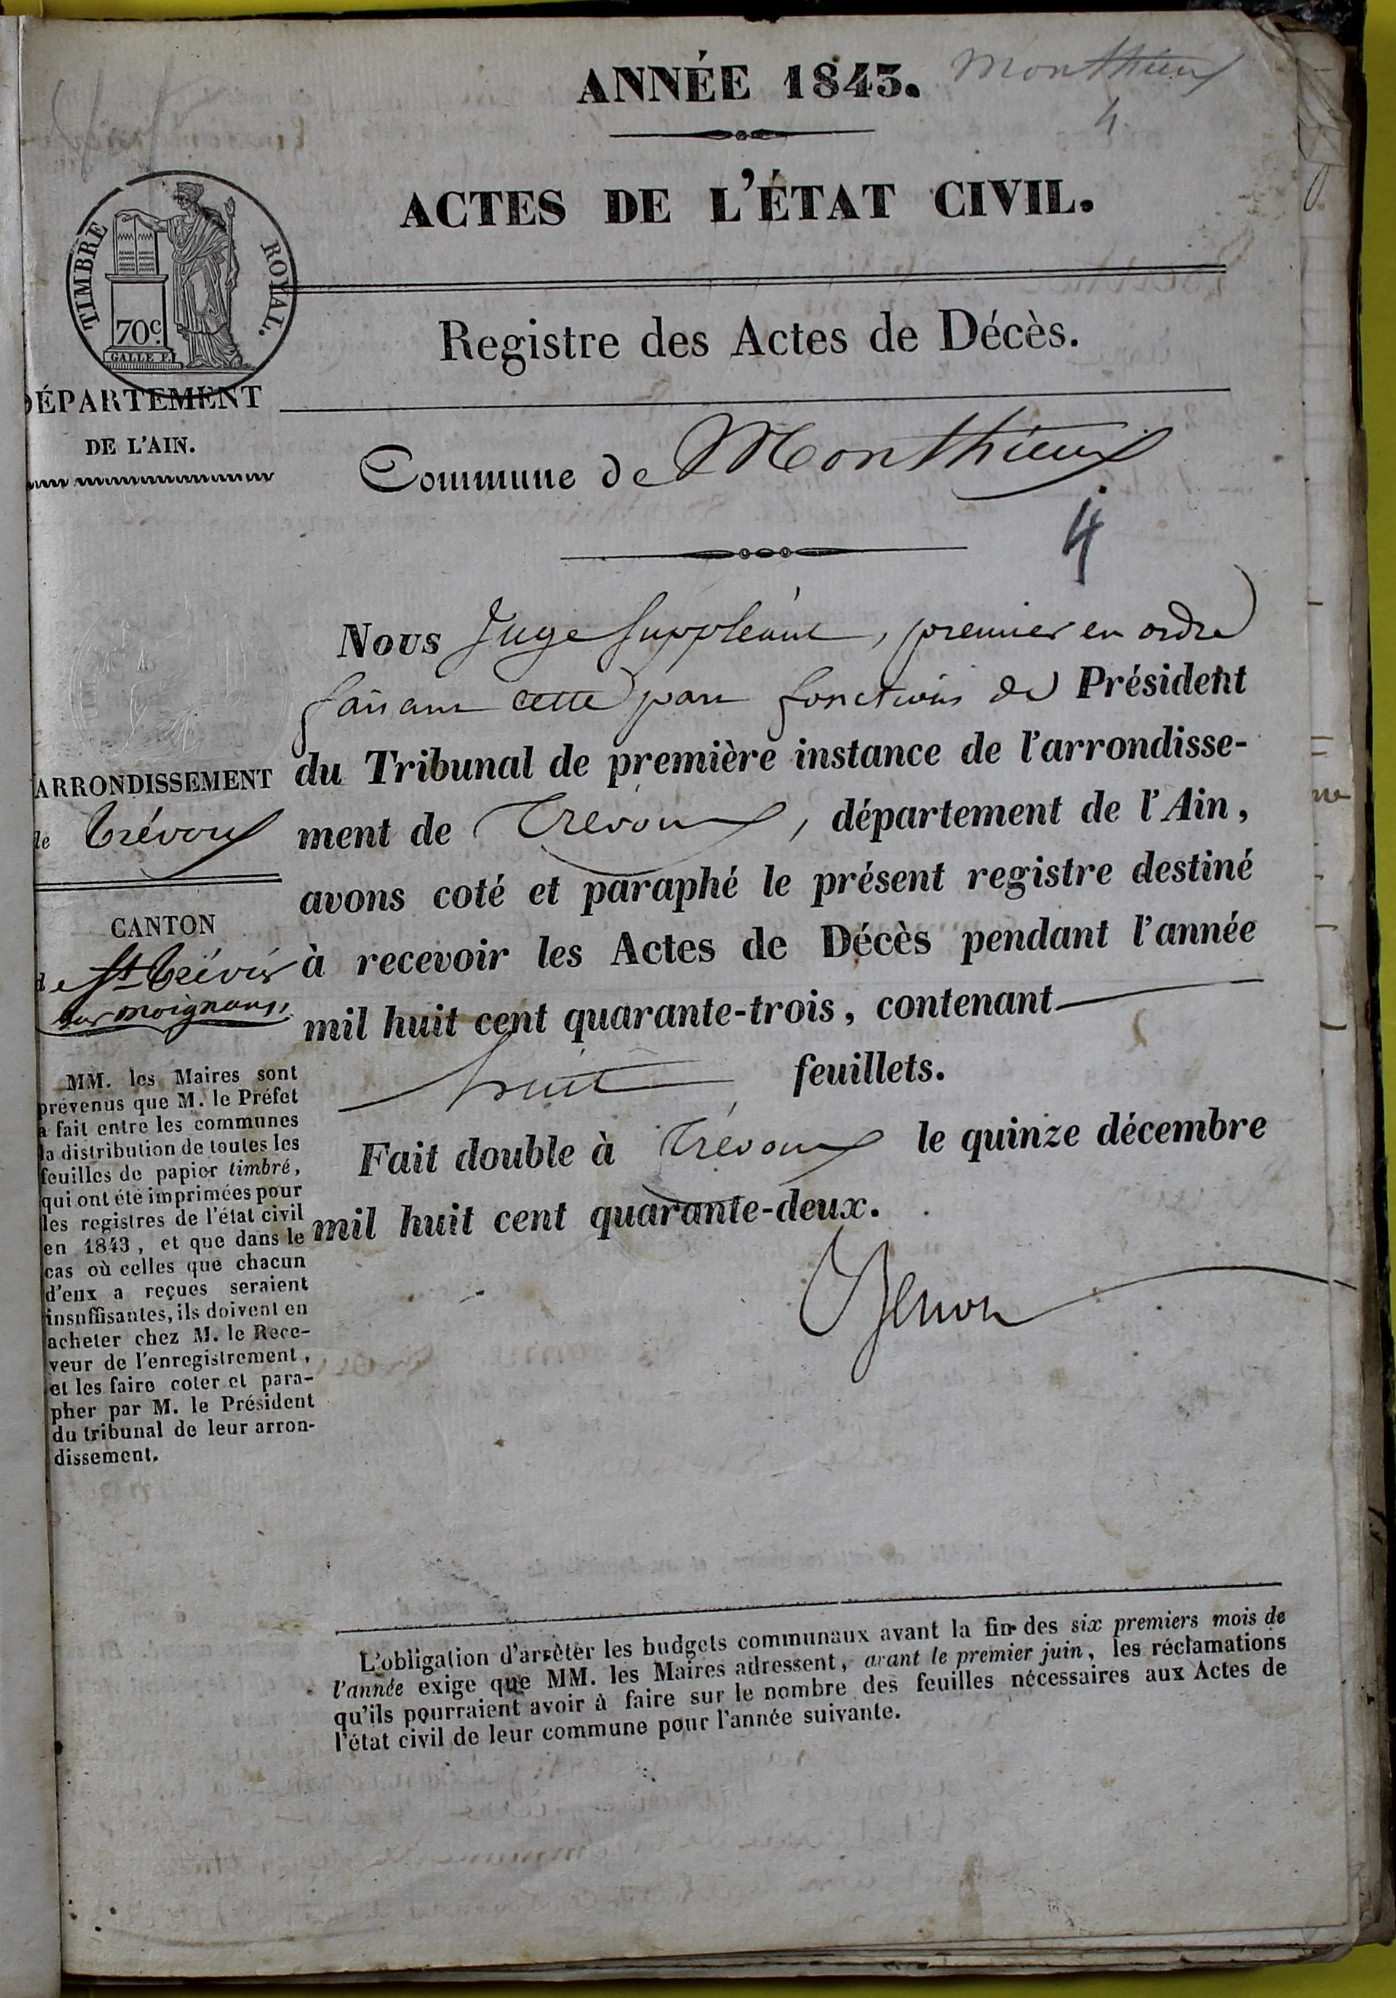 ANNÉE 1843.
Monthieux
4
ACTES DE L'ÉTAT CIVIL.
TIMBRE ROYAL.
70c.
GALLE F.
Registre des Actes de Décès.
DÉPARTEMENT
DE L'AIN.
Commune de Monthieux
4
Nous Juge suppléant, premier en ordre
faisant cette part fonctions de Président
du Tribunal de première instance de l'arrondisse-
ment de Trévoux, département de l'Ain,
avons coté et paraphé le présent registre destiné
à recevoir les Actes de Décès pendant l'année
mil huit cent quarante-trois, contenant
huit feuillets.
Fait double à Trévoux le quinze décembre
mil huit cent quarante-deux.
ARRONDISSEMENT
de Trévoux
CANTON
de St Trivier
sur moignans,
MM. les Maires sont
prévenus que M. le Préfet
a fait entre les communes
la distribution de toutes les
feuilles de papier timbré,
qui ont été imprimées pour
les registres de l'état civil
en 1843, et que dans le
cas où celles que chacun
d'eux a reçues seraient
insuffisantes, ils doivent en
acheter chez M. le Rece-
veur de l'enregistrement,
et les faire coter et para-
pher par M. le Président
du tribunal de leur arron-
dissement.
L'obligation d'arrêter les budgets communaux avant la fin des six premiers mois de
l'année exige que MM. les Maires adressent, avant le premier juin, les réclamations
qu'ils pourraient avoir à faire sur le nombre des feuilles nécessaires aux Actes de
l'état civil de leur commune pour l'année suivante.